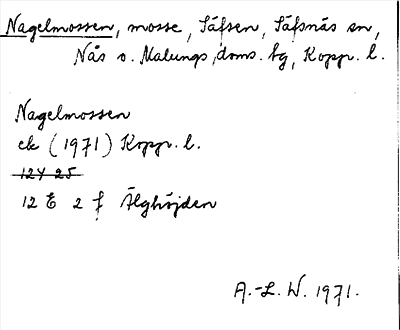 Nagelmossen, mosse, Säfsen, Säfsnäs sn,
Nås o. Malungs doms. hg, Kopp. l.
Nagelmossen
ek (1971) Kopp. l.
12Y 25
12 E 2 f Älghöjden
A.-L. W. 1971.